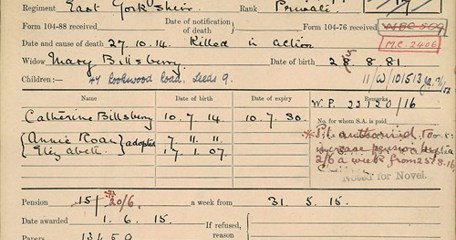 Regiment East York Shire Rank Private
Date of notification of death
Form 104-88 received Form 104-76 received
Date and cause of death 27.10.14. Killed in action
M.C. 2406
Widow Mary Billsberry Date of birth 28.8.81
Children:— Lookwood Road, Leeds 9. 11/W/101513
Date of birth Date of expiry Remarks
W.P. 22130/16
Catherine Billsberry 10.7.14 10.7.30. No. for whom S.A. is paid
Annie Roan 7.11.11
adopted
Elizabeth 17.1.07.
Pt authorised to
increase pension
2/6 a week from 25.8.16
Noted for Novel.
Pension 15/ 20/6. a week from 31.5.15.
Date awarded 1.6.15. If refused,
reason
Papers 13459